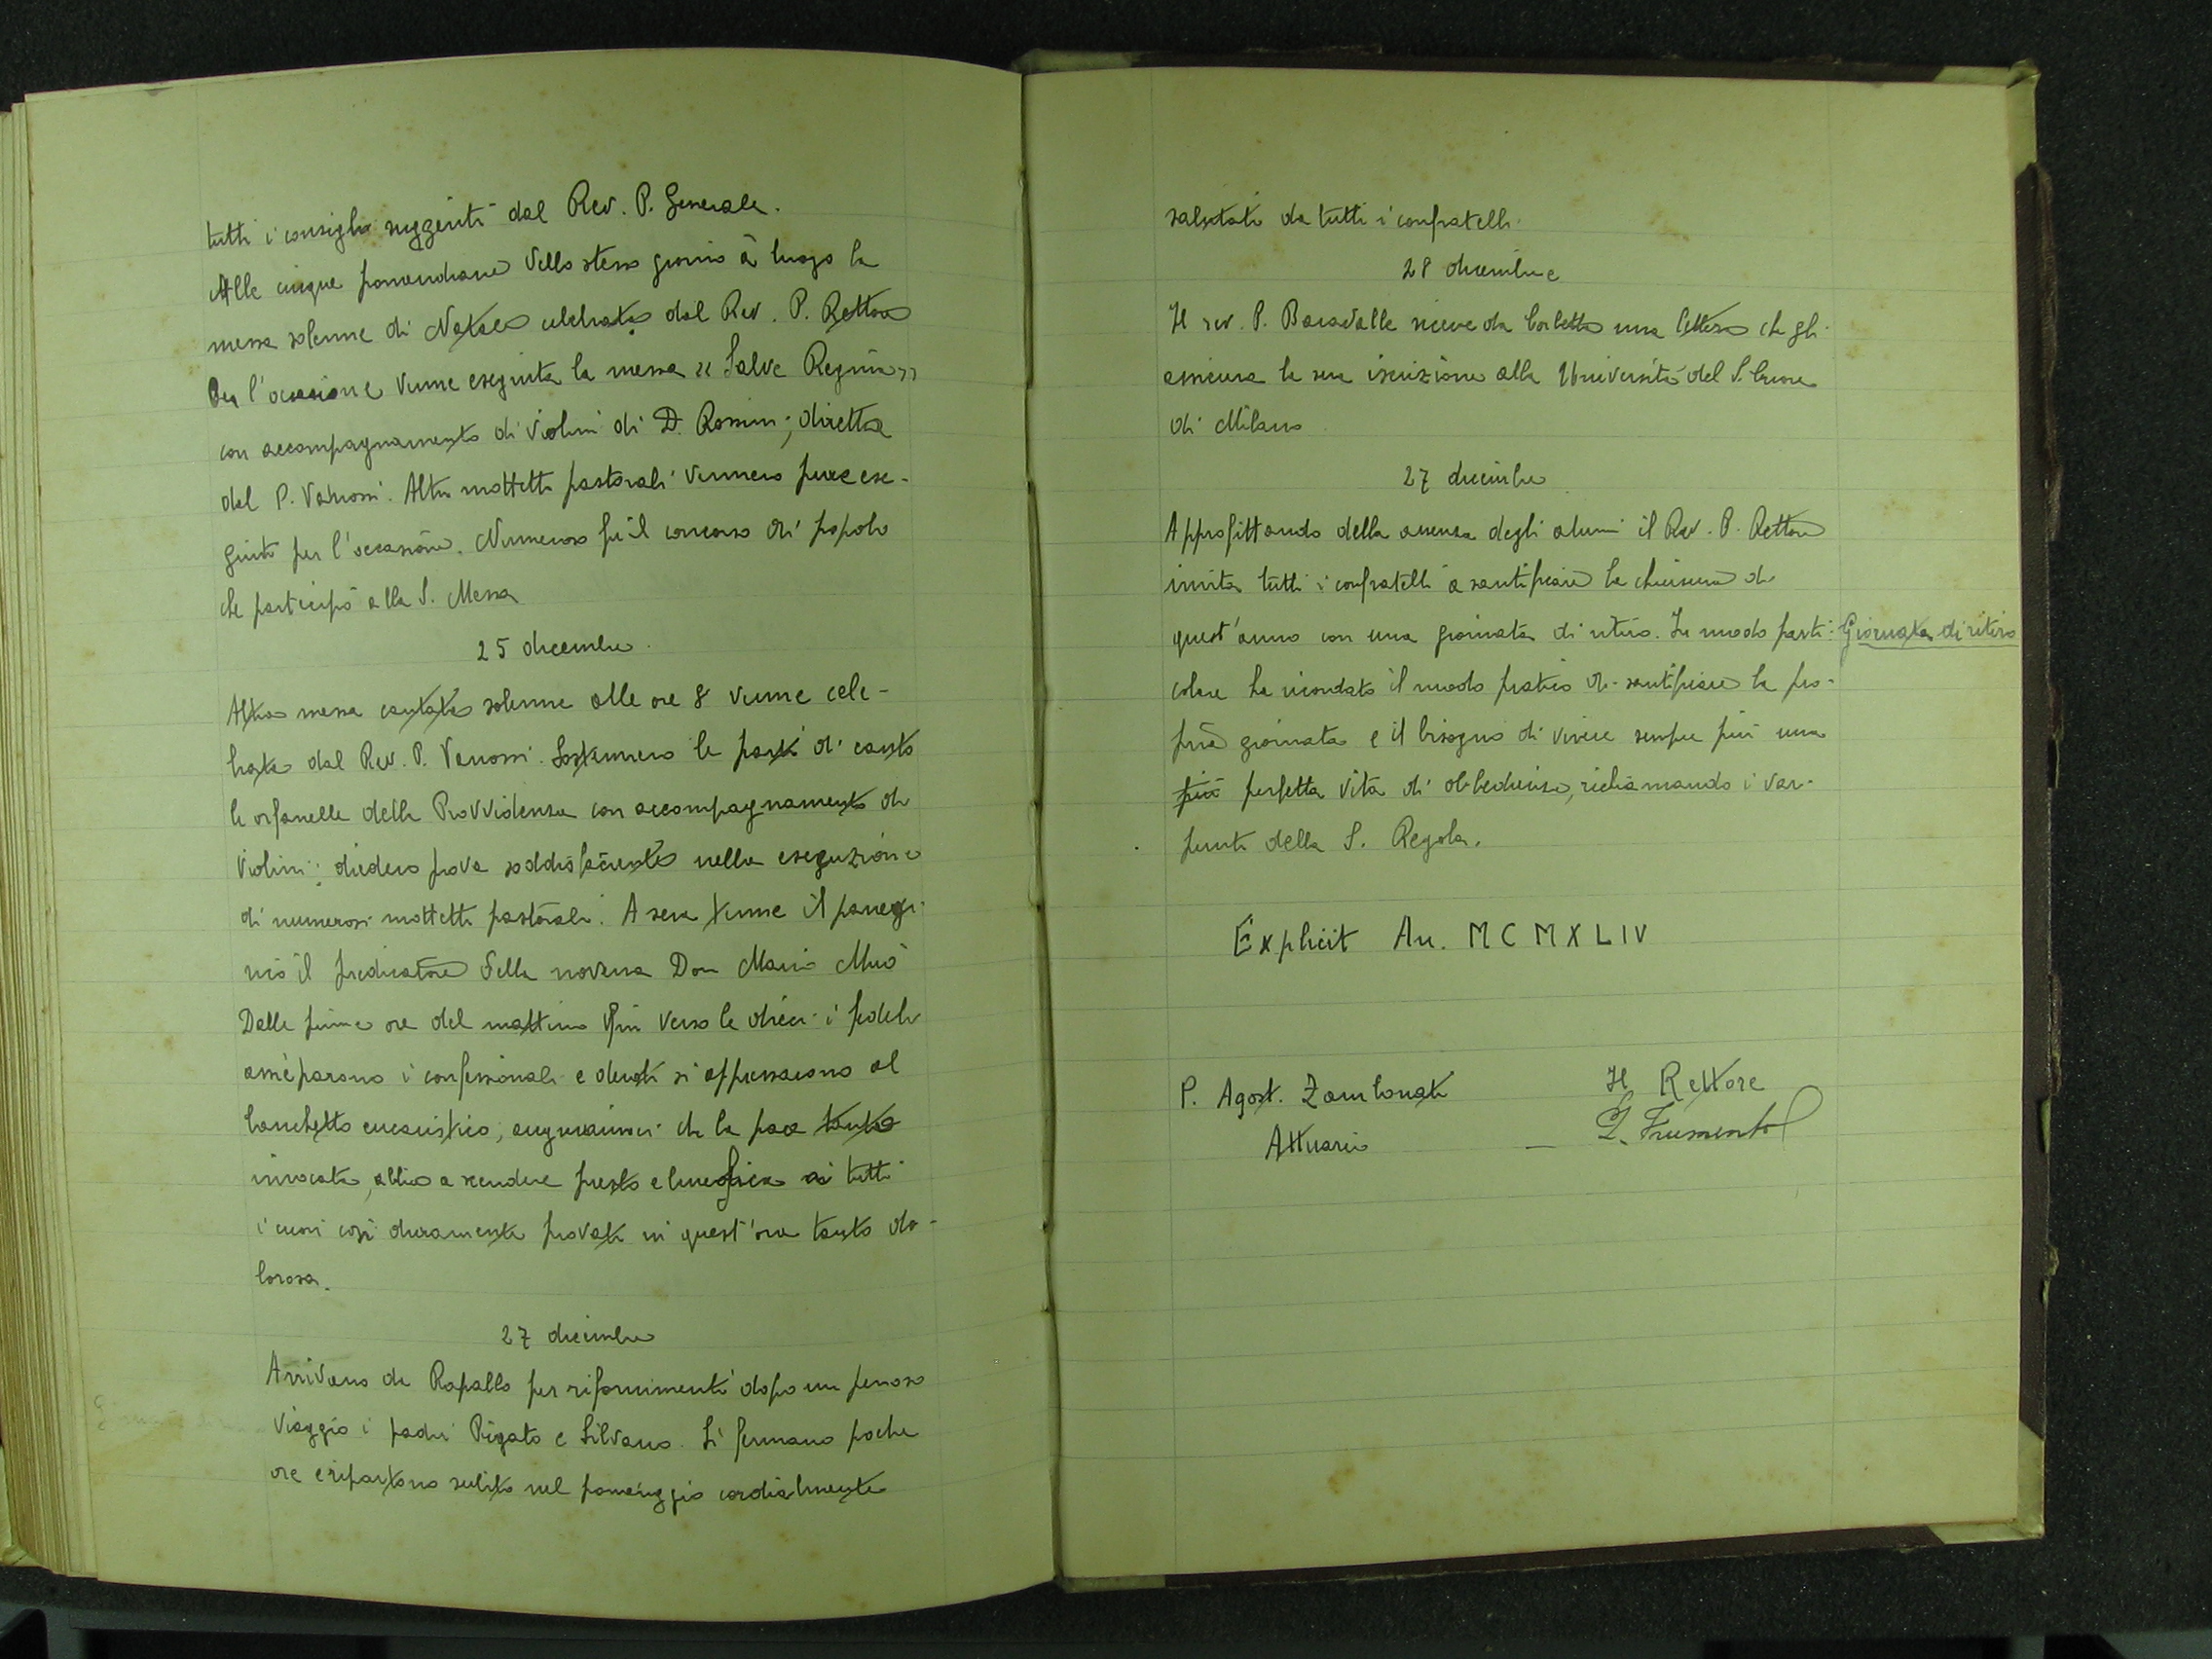 tutti i consigli suggeriti dal Rev. P. Generale.
Alle cinque pomeridiane dello stesso giorno à luogo la
messa solenne di Natale celebrata dal Rev. P. Rettore
Per l'occasione venne eseguita la messa "Salve Regina"
con accompagnamento di violini di D. Rossini; diretta
dal P. Vanossi. Altri mottetti pastorali vennero pure ese-
guiti per l'occasione. Numeroso fu il concorso di popolo
che partecipò alla S. Messa
25 dicembre.
Altra messa cantata solenne alle ore 8 venne cele-
brata dal Rev. P. Vanossi. Sostennero le parti di canto
le orfanelle della Provvidenza con accompagnamento di
violini; diedero prova soddisfacente nella eseguzione
di numerosi mottetti pastorali. A sera tenne il panegi-
rico il predicatore della novena Don Mario
Dalle prime ore del mattino fin verso le dieci i fedeli
assieparono i confessionali e devoti si appressarono al
banchetto eucaristico; auguriamoci che la pace tanto
invocata, abbia a scendere presto e benefica ai tutti
i cuori così duramente provati in quest'ora tanto do-
lorosa.
27 dicembre
Arrivano da Rapallo per rifornimenti dopo un penoso
viaggio i padri Rigato e Silvano. Si fermano poche
ore e ripartono subito nel pomeriggio cordialmente
salutati da tutti i confratelli.
28 dicembre
Il rev. P. Boccadalle riceve da Corbetta una lettera che gli
assicura la sua iscrizione alla Università del S. Cuore
di Milano
27 dicembre
Approfittando della assenza degli alunni il Rev. P. Rettore
invita tutti i confratelli a santificare la chiusura di
quest'anno con una giornata di ritiro. In modo parti-
Giornata di ritiro
colare ha ricordato il modo pratico di santificare la pro-
pria giornata e il bisogno di vivere sempre più una
più perfetta vita di obbedienza, richiamando i vari
punti della S. Regola.
Explicit An. MCMXLIV
P. Agost. Zambonati
Attuario
Il Rettore
Frumento